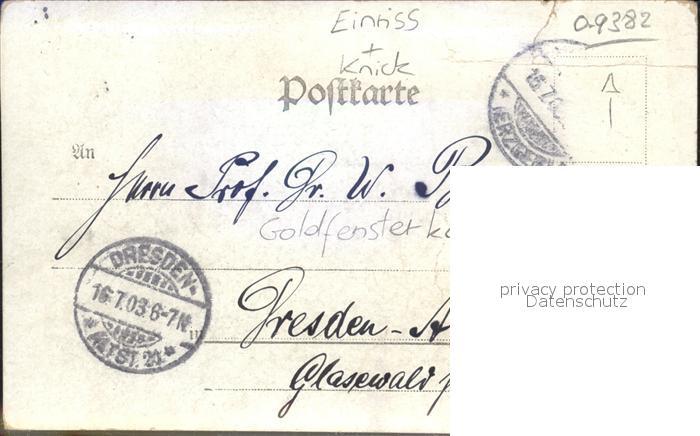 Einriss
+
Knick
09382
Postkarte
16.7.0
(ERZGEB
An
Herrn Prof. Dr. W.
Goldfensterk
DRESDEN-
16.7.03.6-7N.
* ALTST. 21 *
Dresden-A
Glasewald
privacy protection
Datenschutz